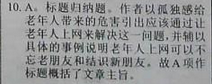 10. A。标题归纳题。作者以孤独感给
老年人带来的危害引出应该通过让
老年人上网来解决这一问题,并辅以
具体的事例说明老年人上网可以不
忘老朋友和结识新朋友。故A项作
标题概括了文章主旨。